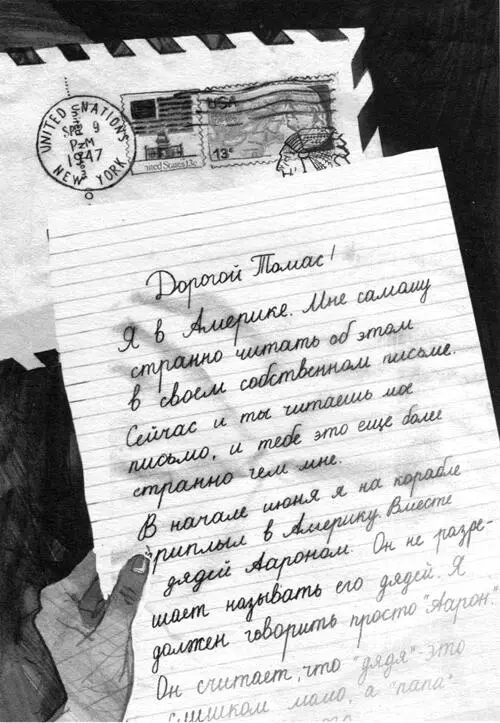 UNITED NATIONS
SEP 9
1947
NEW YORK
USA
13c
Дорогой Томас!
Я в Америке. Мне самому
странно читать об этом
в своем собственном письме.
Сейчас и ты читаешь мое
письмо, и тебе это еще более
странно чем мне.
В начале июня я на корабле
риплыл в Америку. Вместе
дядей Аароном. Он не разре-
шает называть его дядей. Я
должен говорить просто "Аарон".
Он считает, что "дядя" - это
слишком мало, а "папа"